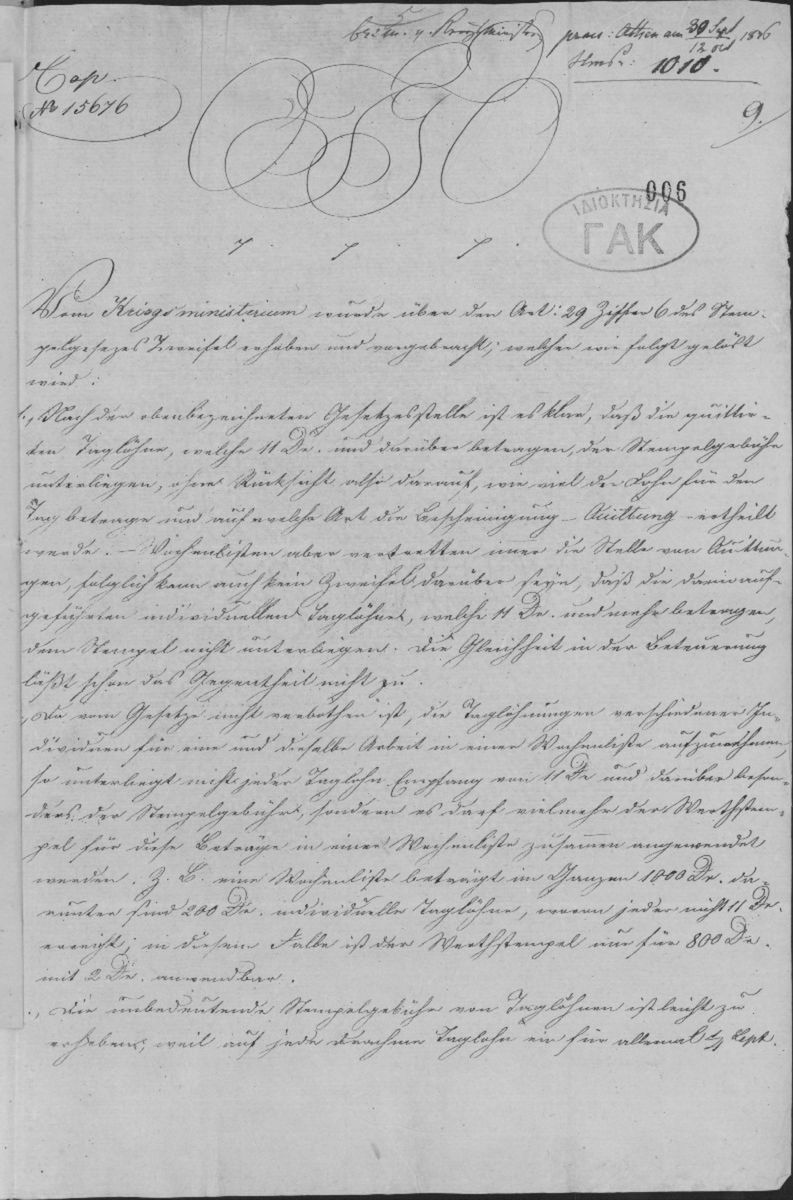 praes: Athen am 30 Sept / 12 Oct 1836
1010.
Cop.
No 15676
9.
006
ΙΔΙΟΚΤΗΣΙΑ
ΓΑΚ
Vom Kriegsministerium wurde über den Art: 29 Ziffer 6 des Stem-
pelgesezes Zweifel erhoben und vorgebracht, welcher wie folgt gelöst
wird:
1., Nach der obenbezeichneten Gesetzesstelle ist es klar, daß die quittir-
ten Taglöhne, welche 11 Dr. und darüber betragen, der Stempelgebühr
unterliegen, ohne Rücksicht also darauf, wie viel der Lohn für den
Tag betrage und auf welche Art die Bescheinigung – Quittung – ertheilt
werde. – Wochenlisten aber vertretten imer die Stelle von Quittun-
gen, folglich kann auch kein Zweifel darüber seyn, daß die darin auf-
geführten individuellen Taglöhne, welche 11 Dr. und mehr betragen,
dem Stempel nicht unterliegen. Die Gleichheit in der Beteuerung
läßt schon das Gegentheil nicht zu.
Da vom Gesetze nicht verbothen ist, die Taglöhnungen verschiedener In-
dividuen für eine und dieselbe Arbeit in einer Wochenliste aufzunehmen,
so unterliegt nicht jeder Taglohn Empfang von 11 Dr und darüber beson-
ders der Stempelgebühr, sondern es darf vielmehr der Werthstem-
pel für diese Beträge in einer Wochenliste zusammen angewendet
werden. Z. B. eine Wochenliste beträgt im Ganzen 1000 Dr. da-
runter sind 200 Dr. individuelle Taglöhne, wovon jeder nicht 11 Dr.
erreicht; in diesem Falle ist der Werthstempel nur für 800 Dr.
mit 2 Dr. anwendbar.
Die unbedeutende Stempelgebühr von Taglöhnen ist leicht zu
erheben, weil auf jede Drachme Taglohn ein für allemal Lept.